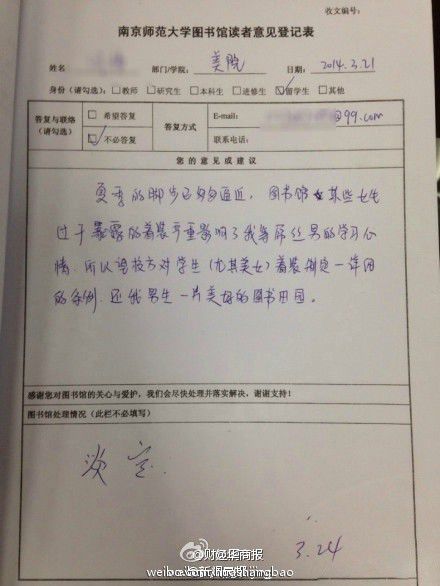 收文编号:
南京师范大学图书馆读者意见登记表
姓名 部门/学院: 美院 日期: 2014.3.21
身份(请勾选): □教师 □研究生 □本科生 □进修生 ☑留学生 □其他
答复与联络(请勾选) □ 希望答复 ☑ 不必答复 答复方式 E-mail: @99.com 联系电话:
您的意见或建议
夏季的脚步已匆匆逼近,图书馆 某些女生
过于暴露的着装严重影响了我等屌丝男的学习心
情.所以望校方对学生(尤其美女)着装制定一详细
的条例.还我男生一片美好的图书田园。
感谢您对图书馆的关心与爱护,我们会尽快处理并落实解决,谢谢支持!
图书馆处理情况(此栏不必填写)
淡定.
3.24
@财经华商报
@新闻晨报